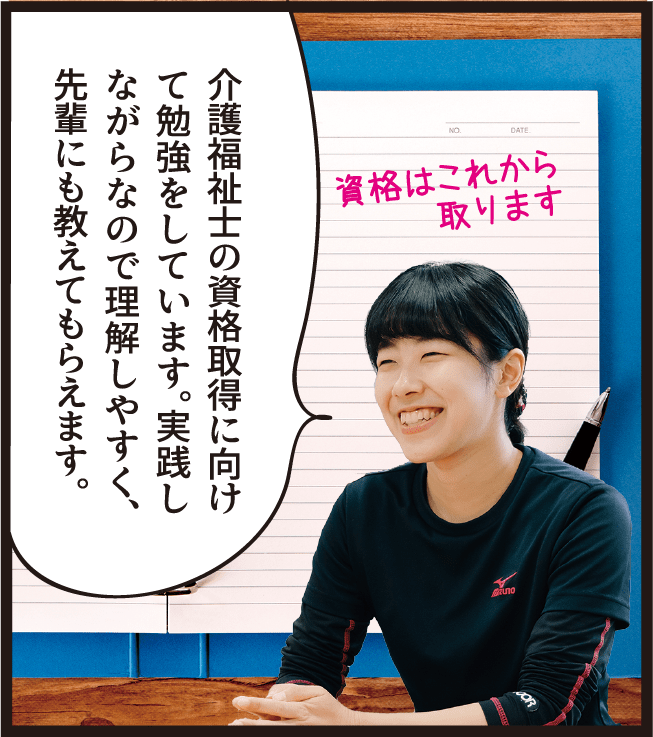 介護福祉士の資格取得に向け
て勉強をしています。実践し
ながらなので理解しやすく、
先輩にも教えてもらえます。
NO.
DATE
資格はこれから
取ります
MIZUNO